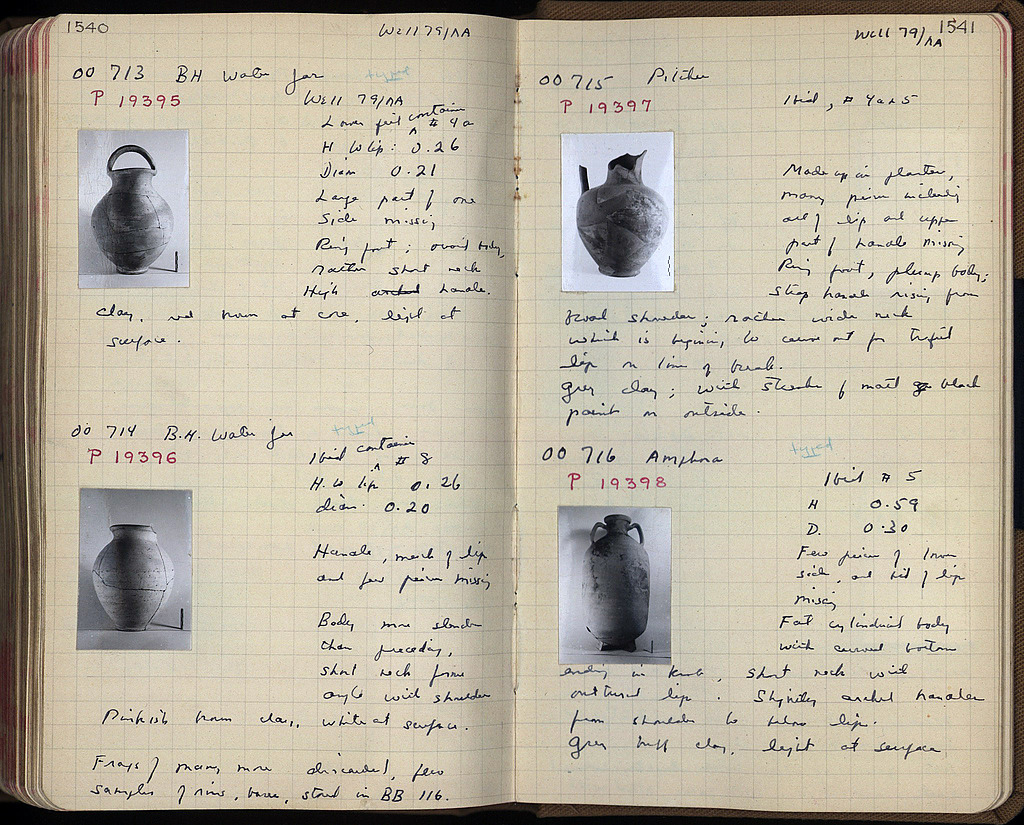 1540
Well 79/ΛΑ
OO 713 BH Water Jar typed
P 19395
Well 79/ΛΑ
Lower fill container # 4a
H to lip: 0.26
Diam 0.21
Large part of one
side missing
Ring foot; ovoid body,
rather short neck
High arched handle.
Clay, red brown at core, light at
surface.
OO 714 B.H. Water Jar typed
P 19396
Ibid container # 8
H. to lip 0.26
diam. 0.20
Handle, much of lip
and few pieces missing
Body more slender
than preceding,
short neck forms
angle with shoulder
Pinkish brown clay, white at surface.
Frags of many more discarded, few
samples of rims, bases, stored in BB 116.
Well 79/ΛΑ
1541
OO 715 Pitcher
P 19397
Ibid, # 4a & 5
Made up in plaster,
many pieces including
all of lip and upper
part of handle missing
Ring foot, plump body;
strap handle rising from
broad shoulder; rather wide neck
which is beginning to curve out for trefoil
lip on line of break.
Grey clay; with streaks of matt black
paint on outside.
OO 716 Amphora typed
P 19398
Ibid # 5
H 0.59
D. 0.30
Few pieces of lower
side, and bit of lip
missing
Fat cylindrical body
with curved bottom
ending in knob, short neck with
outturned lip. Slightly arched handles
from shoulder to below lip.
Grey buff clay, light at surface